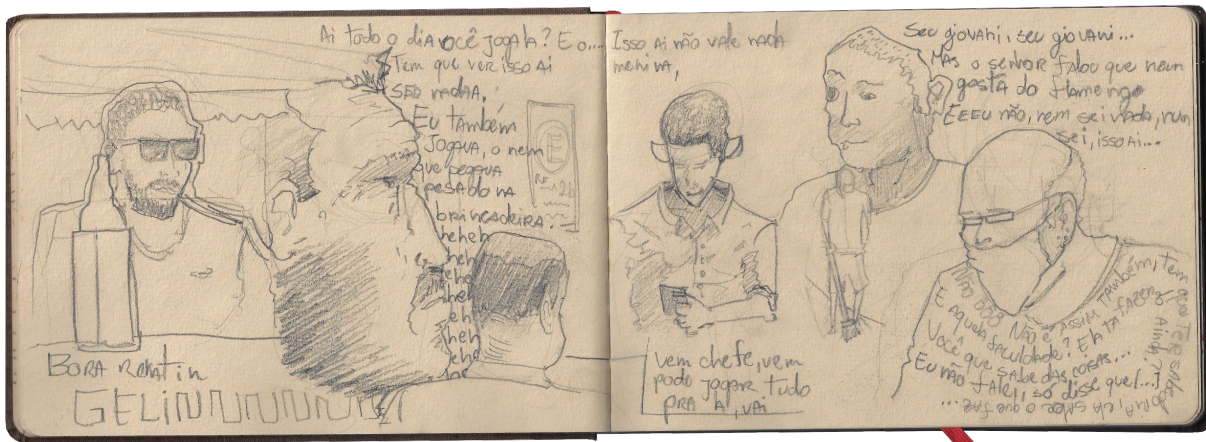 Ai todo o dia você jogaba? E o....
Tem que ver isso ai
seu nadaa.
Eu também
Jogava, o nem
que pegava
pesado na
brincadeira.
heheh
heh
ehe
heh
eh
heh
ehe
he
Bora renatin
GELINNNNNNN
Isso ai não vale nada
menina,
Vem chefe, vem
pode jogar tudo
pra a', vai
Seu giovani, seu giovani...
Mas o senhor falou que nem
gosta do flamengo
EEEU não, nem sei nada, num
sei, isso ai...
Não é assim também, tem que ter sabe
E aquela faculdade? Ela ta fazendo ainda?
Você que sabe das coisas...
Eu não falei, só disse que [...]